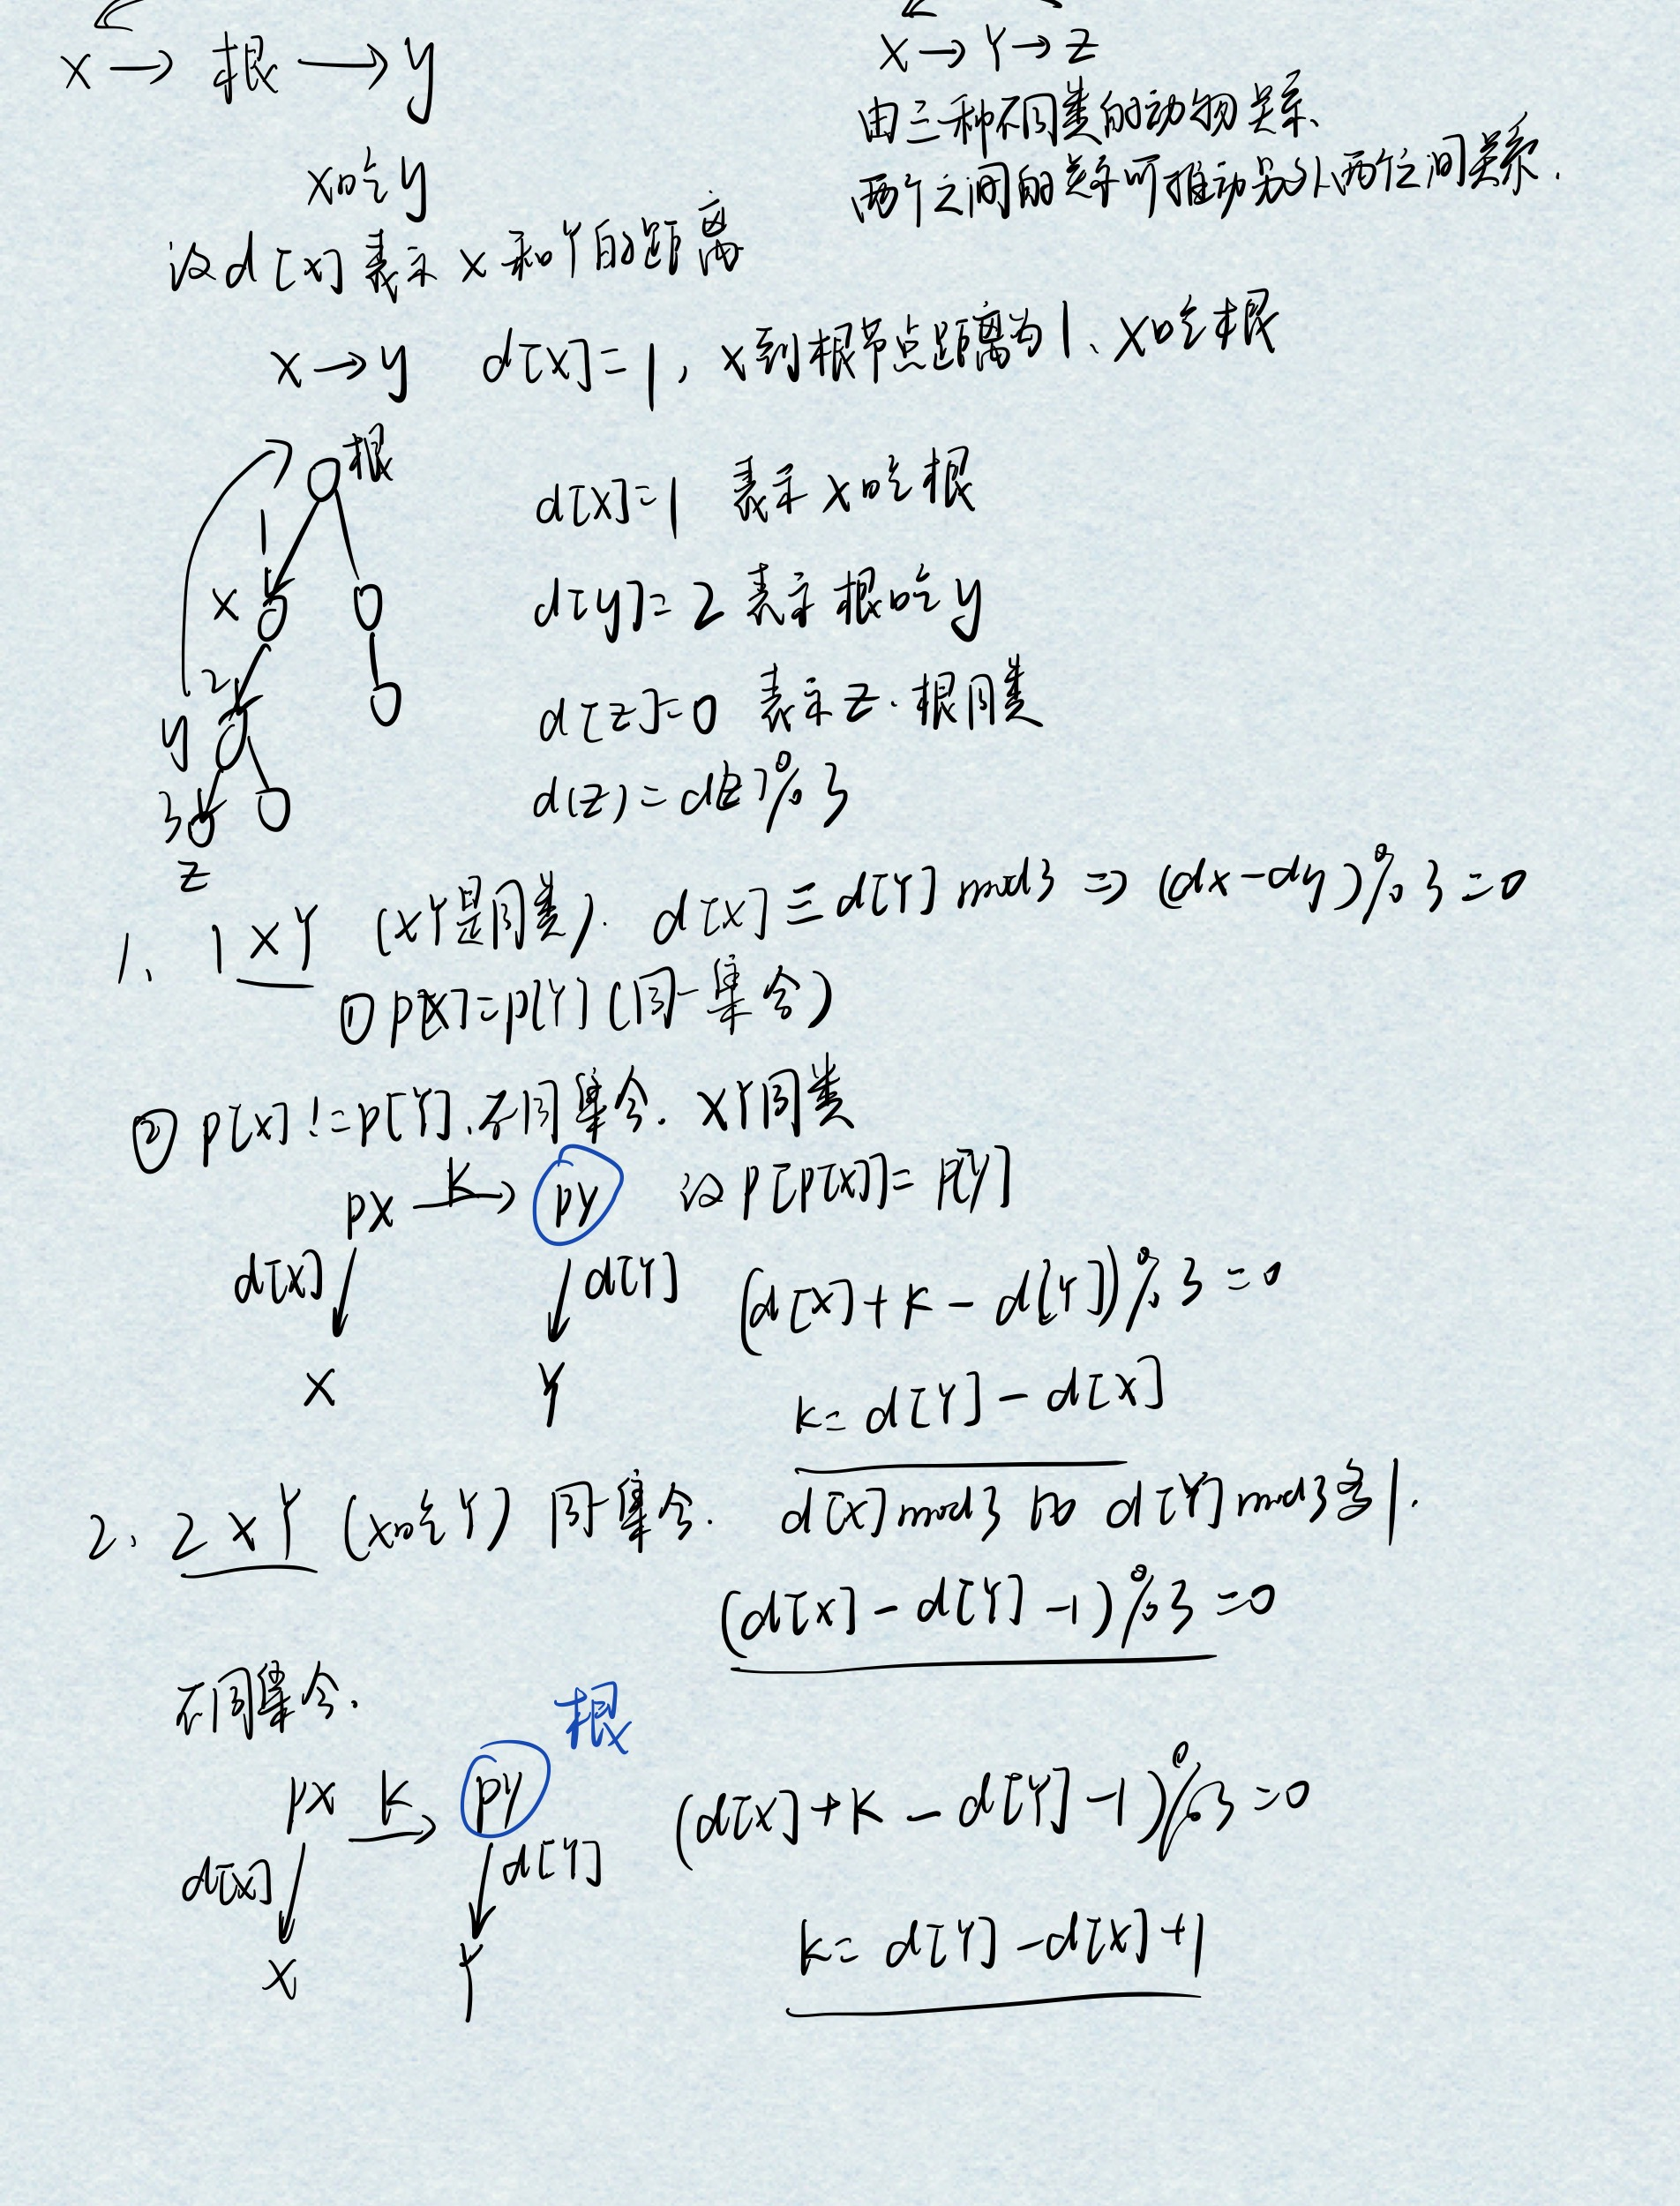 x → 根 → y
x → Y → z
由三种不同类的动物关系、
两个之间的关系可推动另外两个之间关系.
x吃y
设d[x]表示 x 和Y的距离
x → y d[x]=1, x到根节点距离为1、x吃根
根
1
x
2
y
3
z
d[x]=1 表示 x吃根
d[y]=2 表示 根吃y
d[z]=0 表示z.根同类
d(z)=d[z]%3
1、 1 x Y (xY是同类). d[x]≡d[Y] mod3 ⇒ (dx-dy)%3=0
① p[x]=p[Y] (同一集合)
② p[x]!=p[Y].不同集合. xY同类
px K→ py 设 p[p[x]]=p[y]
d[x] d[Y] (d[x]+K-d[Y])%3=0
x Y
k=d[Y]-d[x]
2、 2 x Y (x吃Y) 同一集合. d[x]mod3 比 d[Y]mod3多1.
(d[x]-d[Y]-1)%3=0
不同集合.
根
px K→ py (d[x]+K-d[Y]-1)%3=0
d[x] d[Y]
x Y
k=d[Y]-d[x]+1